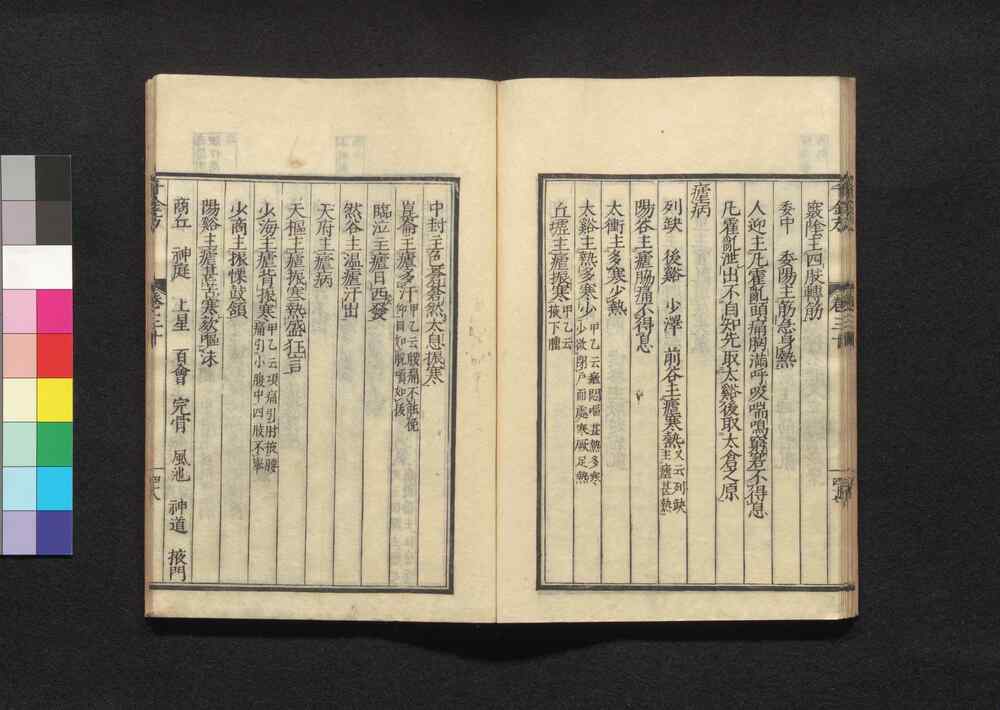 竅陰主四肢轉筋
委中 委陽主筋急身熱
人迎主凡霍亂頭痛胸滿呼吸喘鳴窮窘不得息
凡霍亂泄出不自知先取太谿後取太倉之原
瘧病
列缺 後谿 少澤 前谷主瘧寒熱又云列缺主瘧甚熱
陽谷主瘧脇痛不得息
太衝主多寒少熱
太谿主熱多寒少甲乙云瘧悶嘔甚熱多寒少欲閉戶而處寒厥足熱
丘墟主瘧振寒甲乙云掖下腫
中封主色蒼蒼然太息振寒
崑崙主瘧多汗甲乙云腰痛不能俛仰目如脫項如拔
臨泣主瘧日西發
然谷主溫瘧汗出
天府主瘧病
天樞主瘧振寒熱盛狂言
少海主瘧背振寒甲乙云項痛引肘掖腰痛引小腹中四肢不舉
少商主振慄鼓頷
陽谿主瘧甚苦寒欬嘔沫
商丘 神庭 上星 百會 完骨 風池 神道 掖門
千金方
卷三十